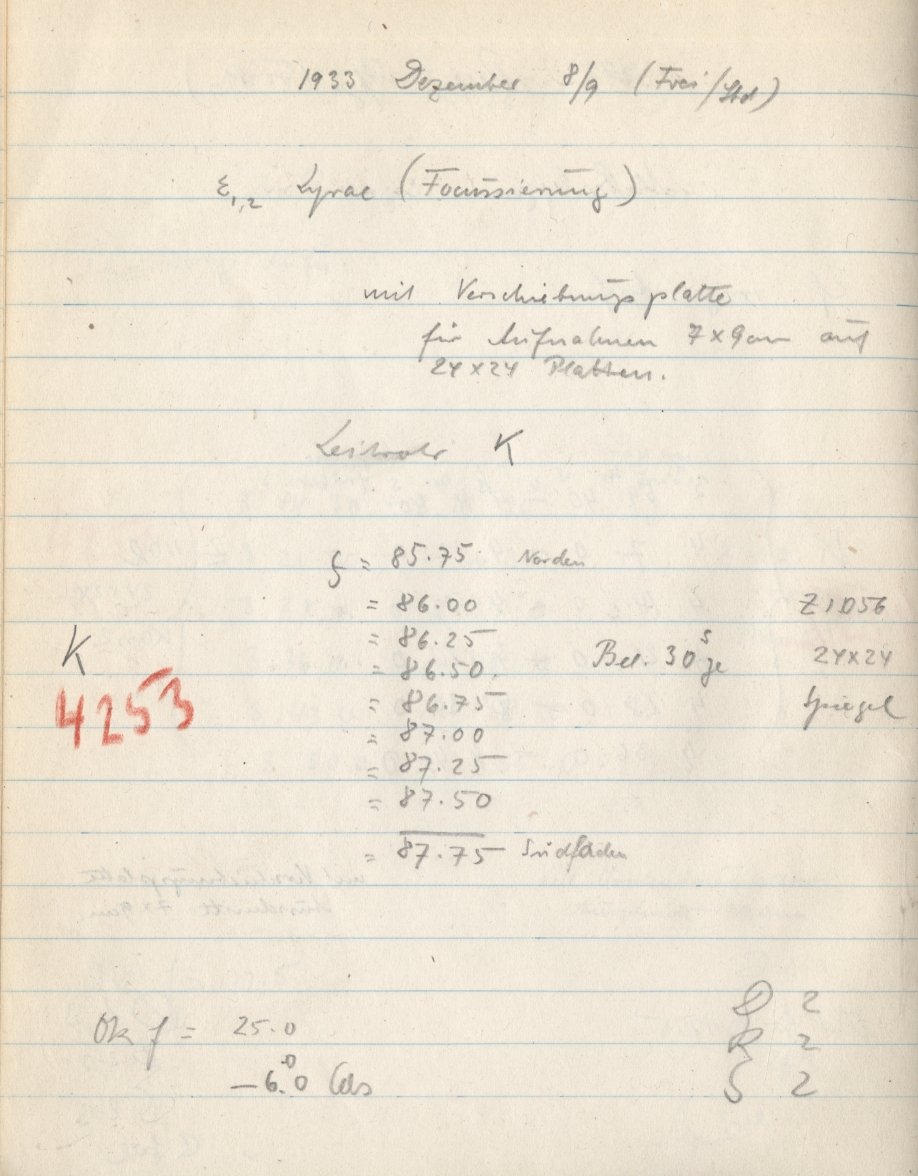 1933 Dezember 8/9 (Frei/Std)
ε1,2 Lyrae (Focussierung)
mit Verschiebungsplatte
für Aufnahmen 7×9cm auf
24×24 Platten.
Leitrohr K
= 85.75 Norden
= 86.00 Z1056
= 86.25
K
= 86.50. Bel. 30s je 24×24
4253
= 86.75 Spiegel
= 87.00
= 87.25
= 87.50
= 87.75 Südfaden
Ok f = 25.0
2
R 2
-6.0° Cels
S 2